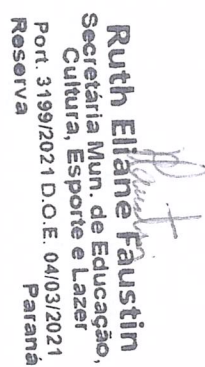 Ruth Eliane Faustin
Secretária Mun. de Educação,
Cultura, Esporte e Lazer
Port. 3199/2021 D.O.E. 04/03/2021
Reserva Paraná